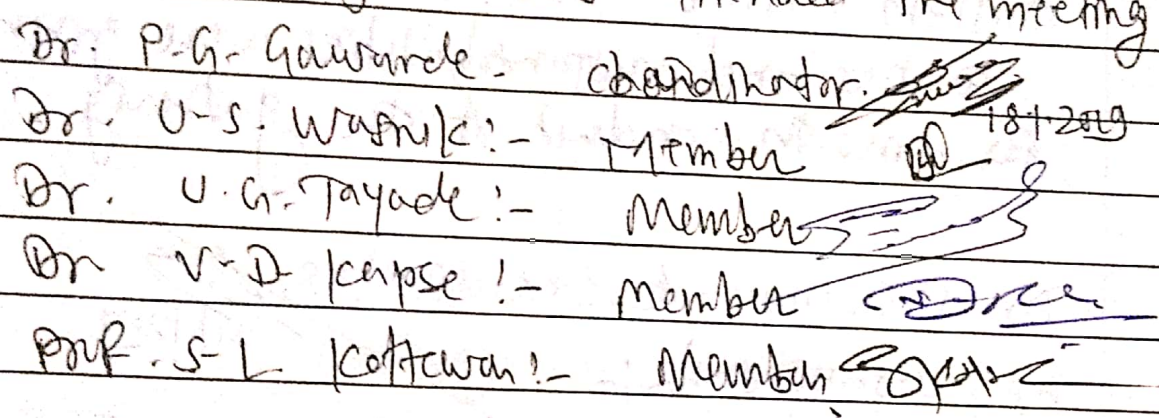 the meeting
Dr. P.G. Gawande - Coordinator.
18/1/2019
Dr. U.S. Wasnik :- Member
Dr. U.G. Tayade :- Member
Dr V.D. Kapse :- Member
Prof. S.L Kottawar :- Member